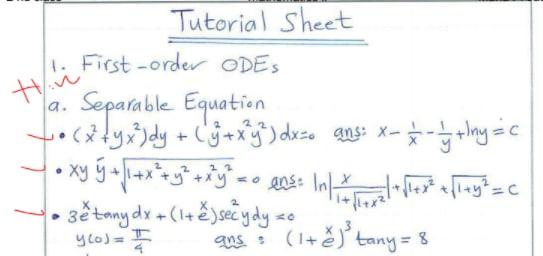 Tutorial Sheet
1. First-order ODEs
H.w
a. Separable Equation
• (x²+yx²)dy + (y²+x²y²)dx=0 ans: x - 1/x - 1/y + lny = c
• xy y' + √(1+x²+y²+x²y²) = 0 ans: ln|x/(1+√(1+x²))| + √(1+x²) + √(1+y²) = C
• 3eˣ tany dx + (1+eˣ) sec²y dy = 0
y(0) = π/4 ans : (1+eˣ)³ tany = 8